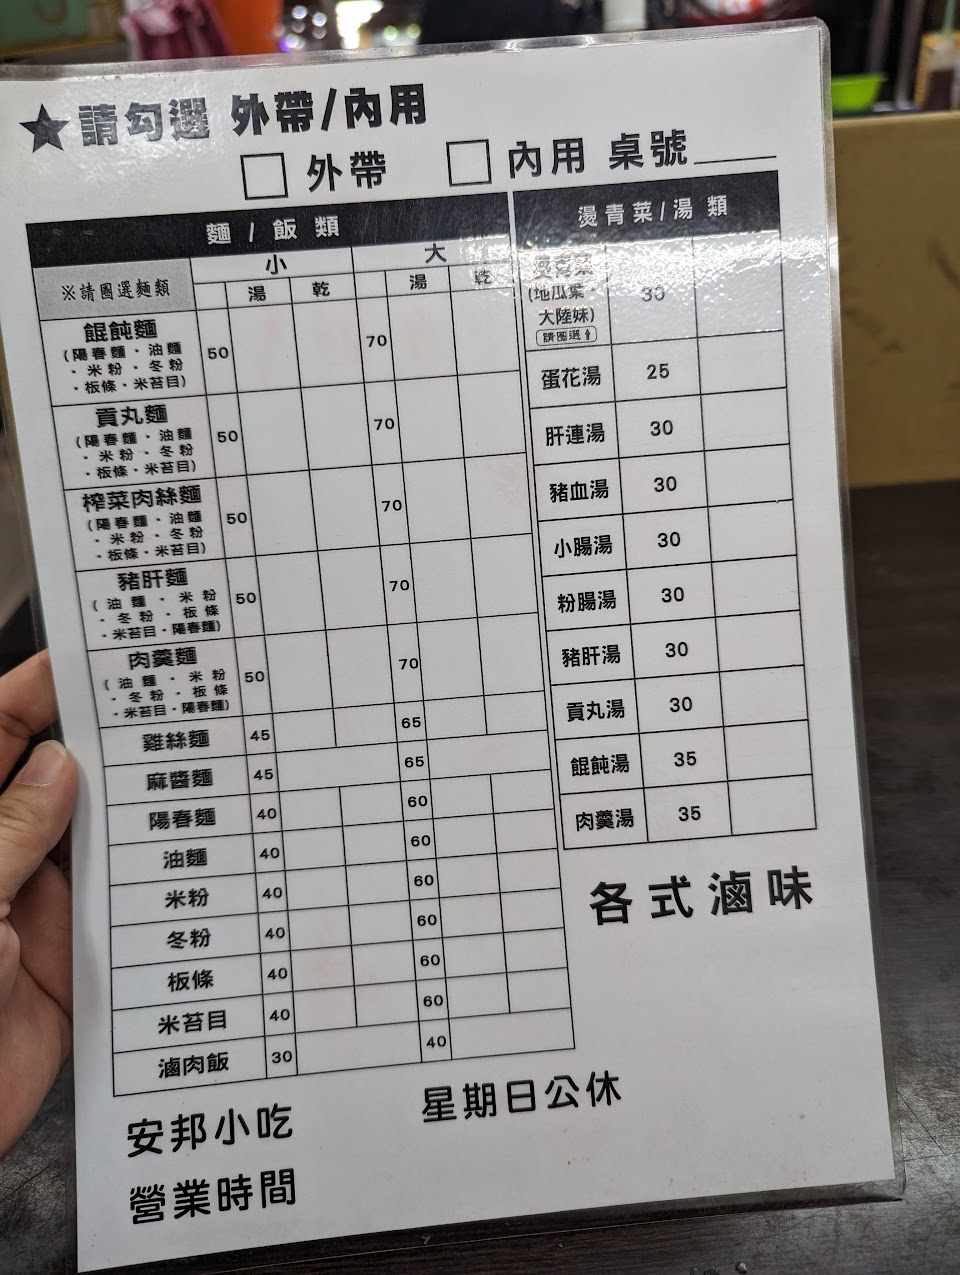 ★請勾選 外帶/內用
□外帶 □內用 桌號____
麵 / 飯 類
※請圈選麵類
小 大
湯 乾 湯 乾
餛飩麵 50 70
(陽春麵・油麵
・米粉・冬粉
・板條・米苔目)
貢丸麵 50 70
(陽春麵・油麵
・米粉・冬粉
・板條・米苔目)
榨菜肉絲麵 50 70
(陽春麵・油麵
・米粉・冬粉
・板條・米苔目)
豬肝麵 50 70
(油麵・米粉
・冬粉・板條
・米苔目・陽春麵)
肉羹麵 50 70
(油麵・米粉
・冬粉・板條
・米苔目・陽春麵)
雞絲麵 45 65
麻醬麵 45 65
陽春麵 40 60
油麵 40 60
米粉 40 60
冬粉 40 60
板條 40 60
米苔目 40 60
滷肉飯 30 40
燙青菜/湯 類
燙青菜 30
(地瓜葉・
大陸妹)
請圈選⬆
蛋花湯 25
肝連湯 30
豬血湯 30
小腸湯 30
粉腸湯 30
豬肝湯 30
貢丸湯 30
餛飩湯 35
肉羹湯 35
各式滷味
安邦小吃 星期日公休
營業時間